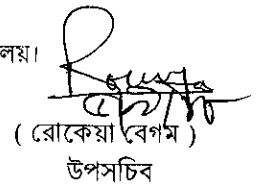 লয়।
( রোকেয়া বেগম )
উপসচিব